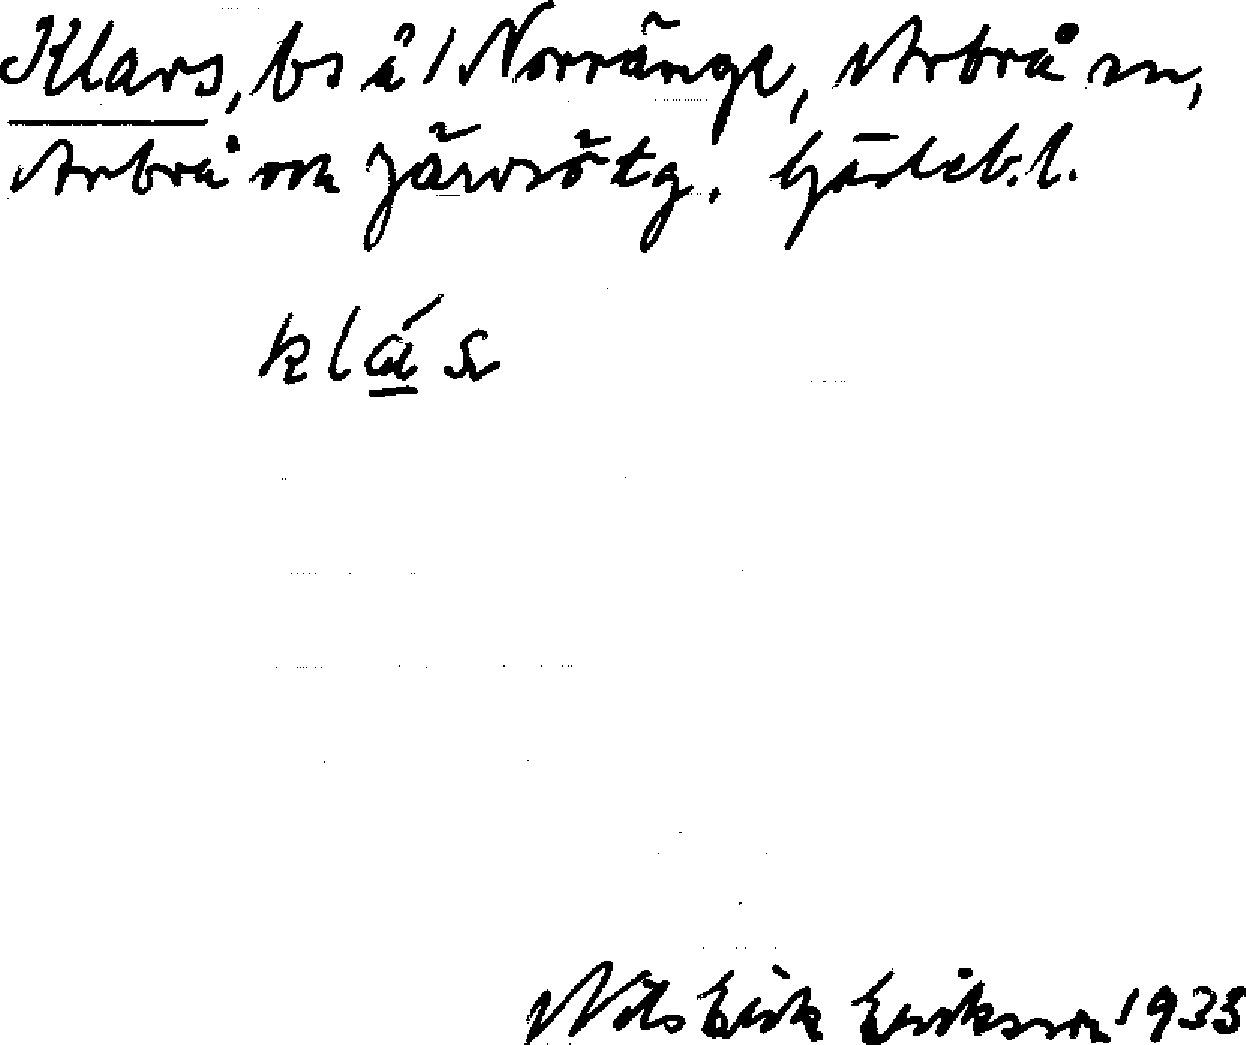 Klars, bs å 1 Norränge, Arbrå sn,
Arbrå och Järvsö tg. Gävleb. l.
klás
Nils Erik Eriksson 1935